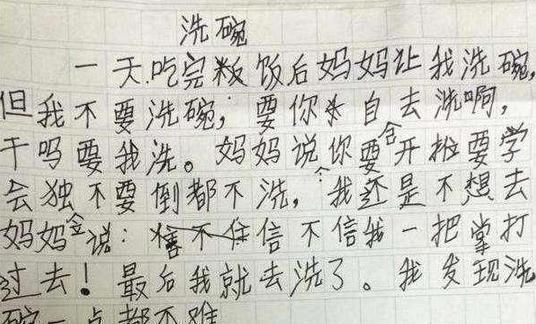 洗碗
一天吃完粄饭后妈妈让我洗碗,
但我不要洗碗,要你自去洗啊,
干吗要我洗。妈妈说你要会开始要学
会独不要倒都不洗,我还是不想去
妈妈会说:信不信我一把掌打
过去!最后我就去洗了。我发现洗
碗一点都不难